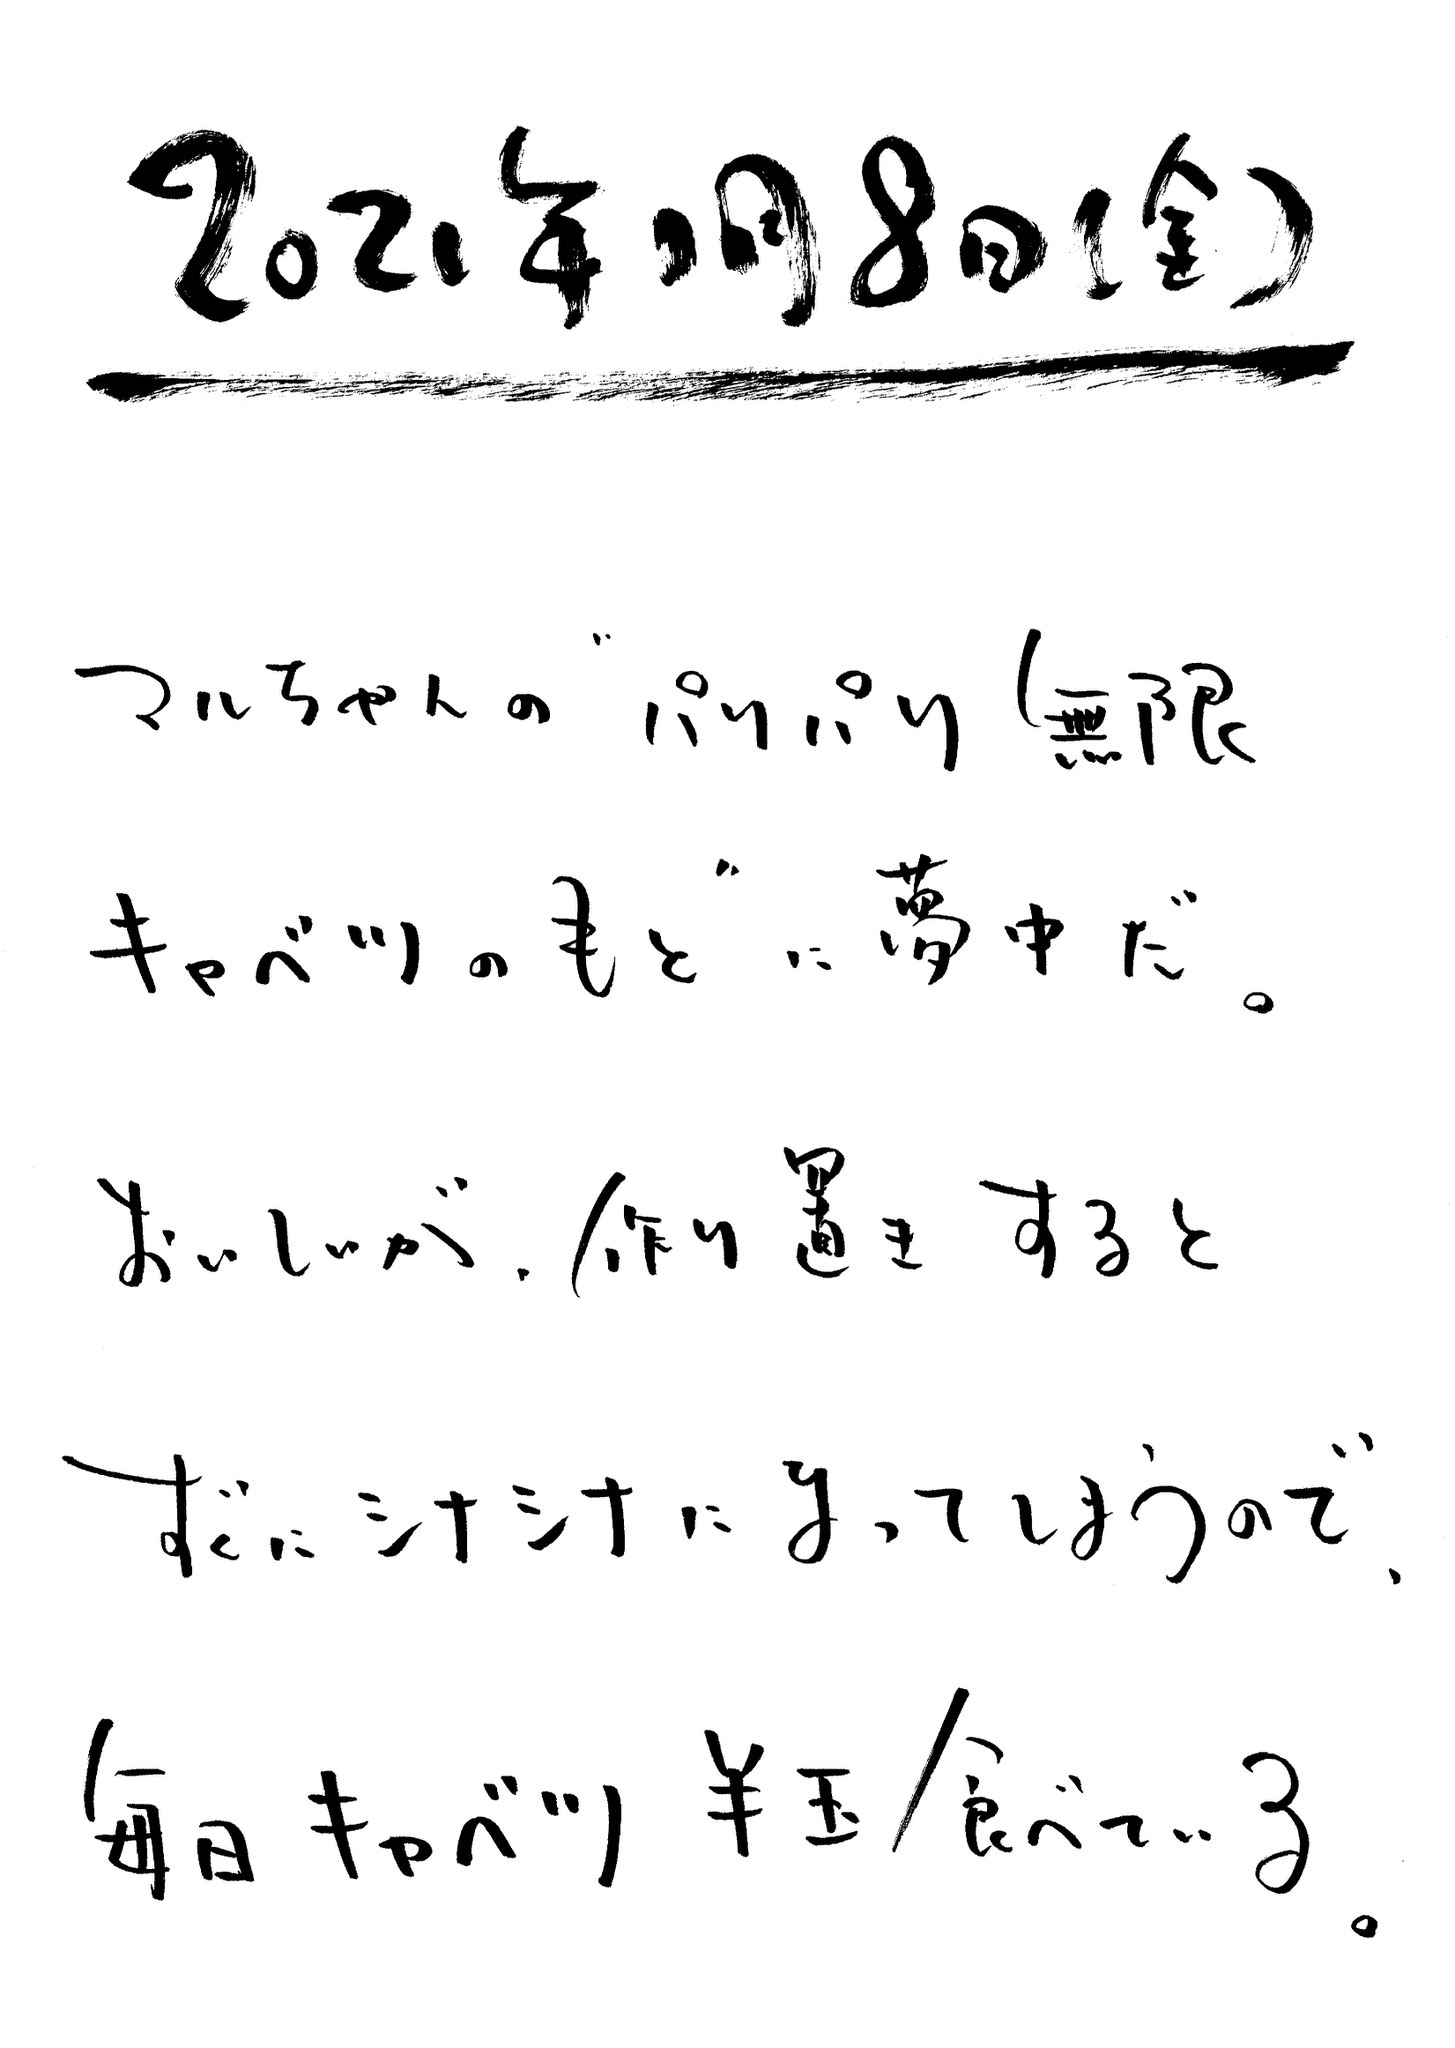 2021年1月8日(金)
マルちゃんの"パリパリ無限
キャベツのもと"に夢中だ。
おいしいが、作り置きすると
すぐにシナシナになってしまうので、
毎日キャベツ半玉食べている。